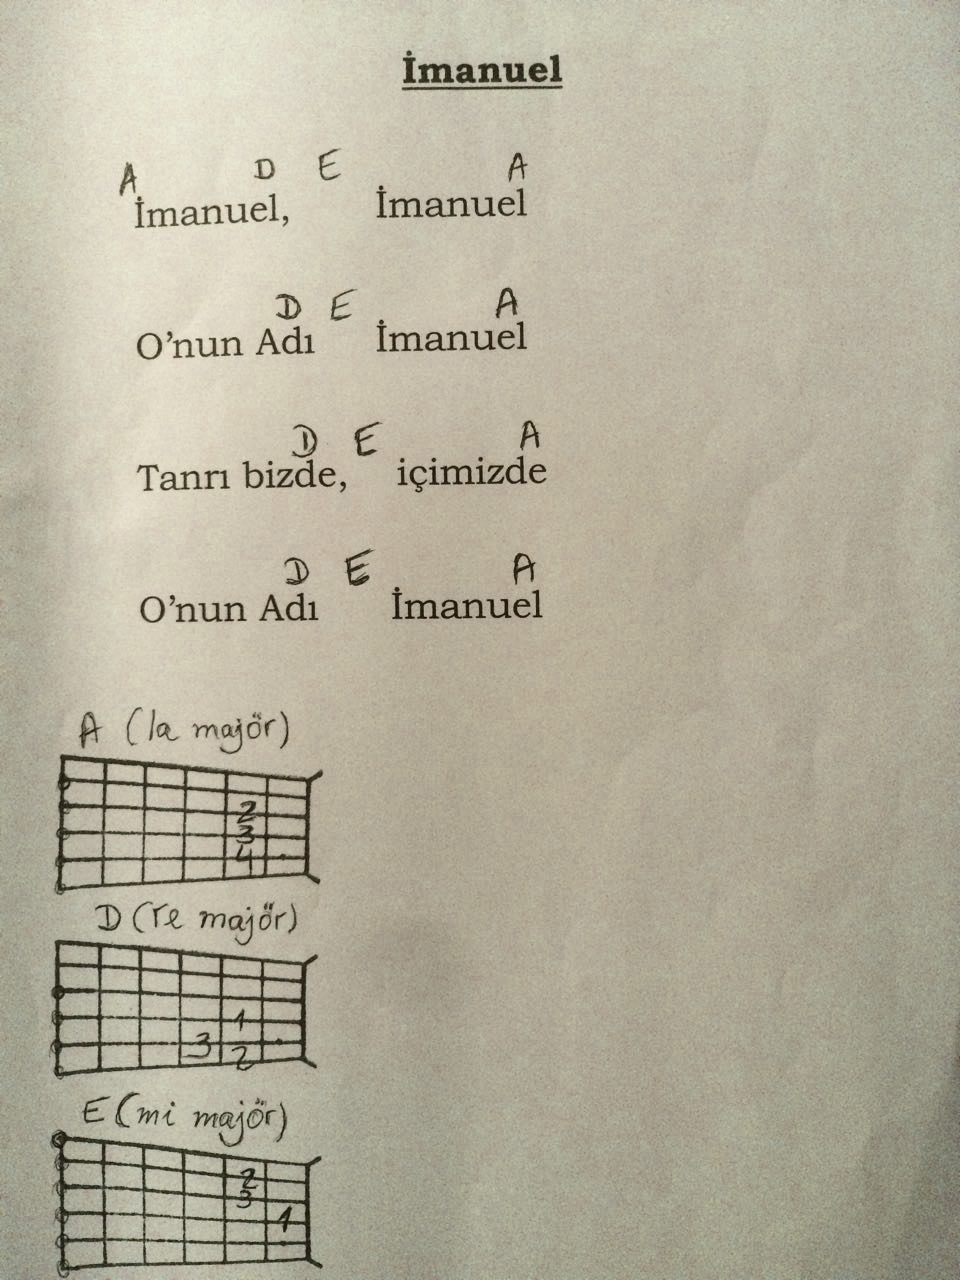 İmanuel
A D E A
İmanuel, İmanuel
D E A
O'nun Adı İmanuel
D E A
Tanrı bizde, içimizde
D E A
O'nun Adı İmanuel
A (la majör)
2
3
4
D (re majör)
1
3 2
E (mi majör)
2
3
1